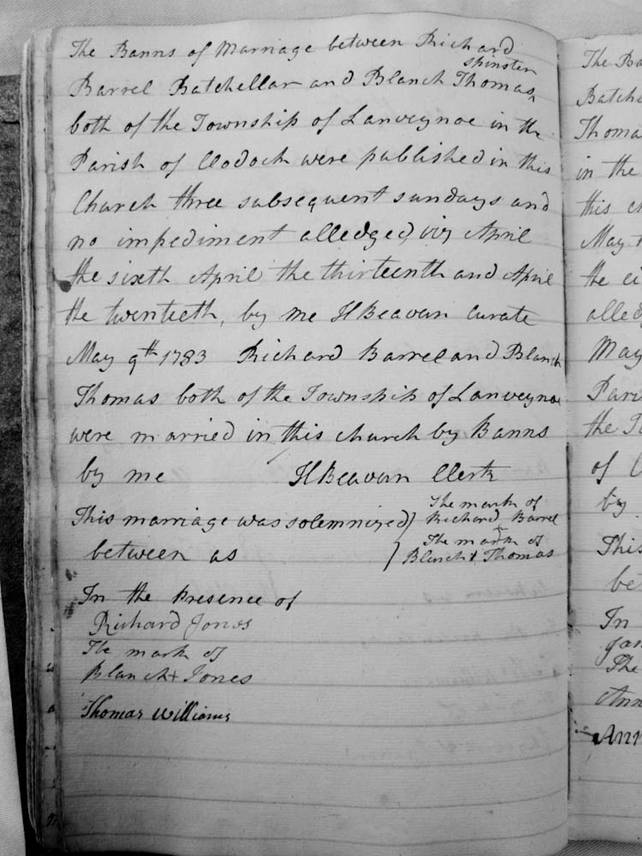 The Banns of Marriage between Richard
spinster
Barrel Batchellar and Blanch Thomas
both of the Township of Lanveynoe in the
Parish of Clodock were published in this
Church three subsequent sundays and
no impediment alledged, viz April
the sixth April the thirteenth and April
the twentieth, by me H Beavan Curate
May 9th 1783 Richard Barrel and Blanch
Thomas both of the Township of Lanveynoe
were married in this church by Banns
by me H Beavan Clerk
This marriage was solemnized } The mark of
Richard Barrel
between as } The mark of
Blanch + Thomas
In the Presence of
Richard Jones
The mark of
Blanch + Jones
Thomas Williams
The Ba
Batche
Thoma
in the
this c
May
the ei
alled
May
Pari
the To
of
by
This
be
In
The
Ann
Ann